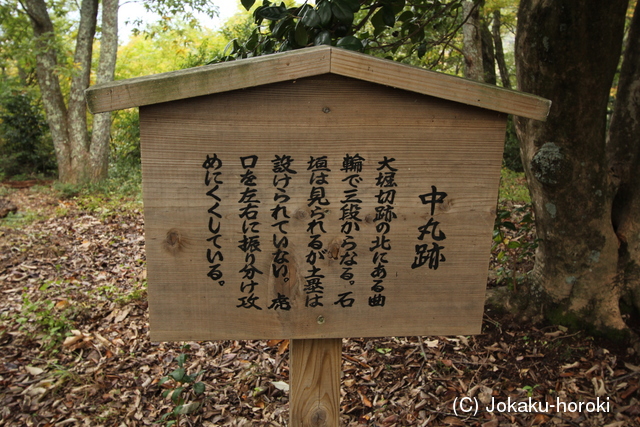 中丸跡
大堀切跡の北にある曲
輪で三段からなる。石
垣は見られるが土塁は
設けられていない。虎
口を左右に振り分け攻
めにくくしている。
(C) Jokaku-horoki